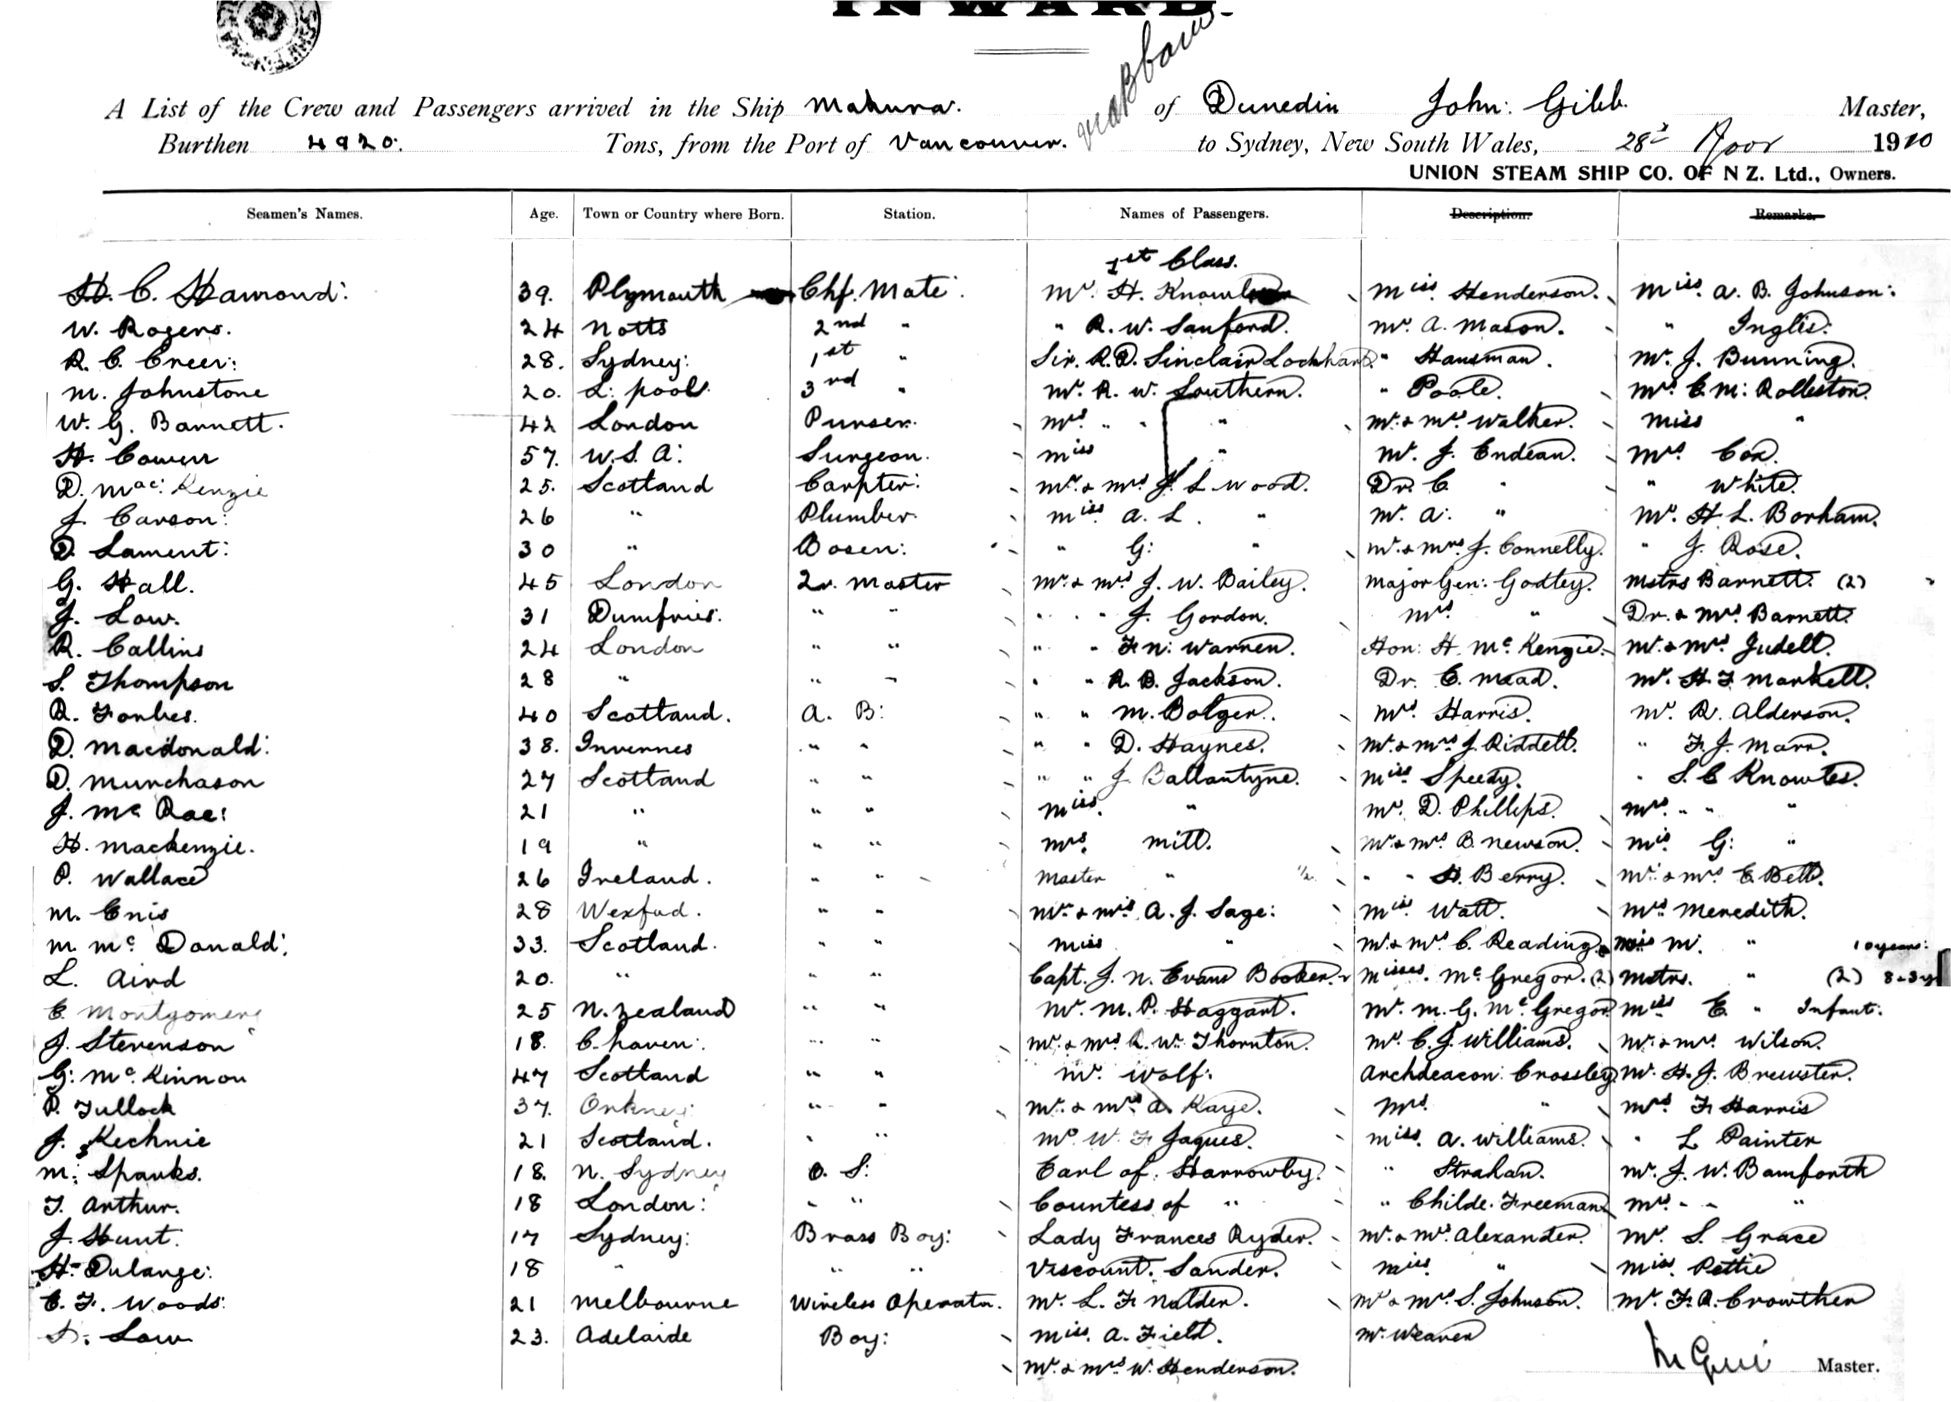 INWARD.
A List of the Crew and Passengers arrived in the Ship Makura. of Dunedin John: Gibb. Master,
Burthen 4920: Tons, from the Port of Vancouver. to Sydney, New South Wales, 28 1910
UNION STEAM SHIP CO. OF N Z. Ltd., Owners.
Seamen's Names. Age. Town or Country where Born. Station. Names of Passengers. Description. Remarks.
1st Class.
H. C. Hamond: 39. Plymouth Chf. Mate. Mr. H. Knowles Miss. Henderson. Miss. A. B. Johnson:
W. Rogers. 24 Notts 2nd " " R. W. Sanford. Mr. A. Mason. " Inglis.
R. C. Creer: 28. Sydney: 1st " Sir. R. D. Sinclair Lockhart. " Hausman. Mr. J. Bunning.
M. Johnstone 20. L: pool. 3rd " Mr. R. W. Southern. " Poole. Mrs C. M: Rolleston.
W. G. Barnett. 42 London Purser. Mrs. " " " Mr. & Mrs. Walker. Miss "
H. Cowen 57. U. S. A: Surgeon. Miss " Mr. J. Endean. Mrs Cox.
D. Mac: Kenzie 25. Scotland Carpter: Mr. & Mrs J. L. Wood. Dr. C " " White.
J. Carson: 26 " Plumber. Miss. A. L. " Mr. A: " Mr. H. L. Borham.
D. Lament: 30 " Bosen: " G: " Mr. & Mrs. J. Connelly. " J. Rose.
G. Hall. 45 London Qr. Master Mr. & Mrs J. W. Bailey. Major Gen: Godley. Mstrs Barnett. (2)
J. Low. 31 Dumfries. " " " " J. Gordon. Mrs " Dr. & Mrs Barnett.
R. Collins 24 London " " " " F. N: Warren. Hon: H. Mc Kenzie. Mr. & Mrs Judell.
S. Thompson 28 " " " " " R. B. Jackson. Dr. C. Mead. Mr. H. F. Markell.
R. Forbes. 40 Scotland. A. B: " " M. Bolger. Mrs Harris. Mr. R. Alderson.
D. Macdonald: 38. Inverness " " " " D. Haynes. Mr. & Mrs J. Riddell. " F. J. Marr.
D. Murchason 27 Scotland " " " " J. Ballantyne. Miss Speedy. " S. C Knowles.
J. Mc Rae: 21 " " " Miss. " Mr. D. Phillips. Mrs. " " "
H. Mackenzie. 19 " " " Mrs. Mill. Mr. & Mrs B. Newson. Miss G: "
P. Wallace 26 Ireland. " " Master " 1/2 " " H. Berry. Mr. & Mrs C Bell.
M. Enis 28 Wexford. " " Mr. & Mrs. A. J. Sage: Miss. Watt. Mrs Meredith.
M Mc Donald: 33. Scotland. " " Miss " Mr. & Mrs. C. Reading. Miss M. " 10 years.
L. Aird 20. " " " Capt. J. N. Evans Booker. Misses. Mc Gregor. (2) Mstrs. " (2) 8 & 3 yr
C. Montgomery 25 N. Zealand " " Mr. M. P. Haggart. Mr. M. G. Mc Gregor Miss C " Infant:
J. Stevenson 18. C. haven: " " Mr. & Mrs R. W. Thornton. Mr. C. J. Williams. Mr. & Mrs. Wilson.
G: Mc. Kinnon 47 Scotland " " Mr. Wolf: Archdeacon: Crossley. Mr. H. J. Brewster.
P. Tullock 37. Orkney: " " Mr. & Mrs A. Kaye. Mrs. " Mrs F. Harris
J. Kechnie 21 Scotland. " " Mr. W. F. Jaques. Miss. A. Williams. " L Painter
M: Sparks. 18. N. Sydney O. S: Earl of. Harrowby. " Strahan. Mr. J. W. Bamforth
T. Arthur. 18 London: " " Countess of " " Childe. Freeman Mrs. " " "
J. Hunt. 17 Sydney: Brass Boy: Lady Frances Ryder. Mr. & Mrs. Alexander. Mr. S. Grace
H. Dulange: 18 " " " Viscount. Sander. Miss. " Miss. Pettie
C. F. Woods: 21 Melbourne Wireless Operatr. Mr. L. F. Nalder. Mr. & Mrs. S. Johnson. Mr. F. R. Crowther
Law 23. Adelaide Boy: Miss. A. Field. Mr. Weaver
Mr. & Mrs W. Henderson. Master.